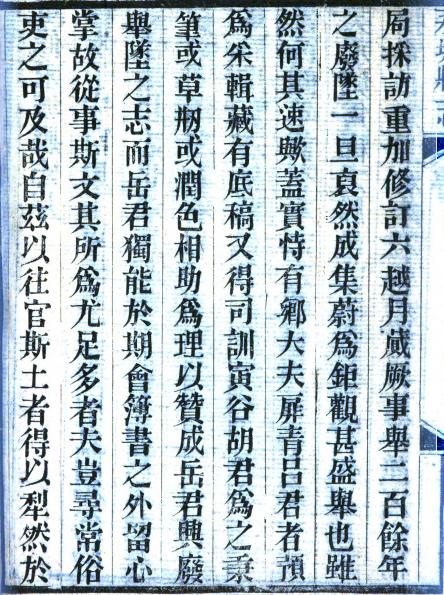 局採訪重加修訂六越月蕆厥事舉二百餘年
之廢墜一旦裒然成集蔚爲鉅觀甚盛舉也雖
然何其速歟蓋實恃有鄉大夫屏青呂君者預
爲采輯藏有底稿又得司訓寅谷胡君爲之秉
筆或草剏或潤色相助爲理以贊成岳君興廢
舉墜之志而岳君獨能於期會簿書之外留心
掌故從事斯文其所爲尤足多者夫豈尋常俗
吏之可及哉自茲以往官斯土者得以犁然於